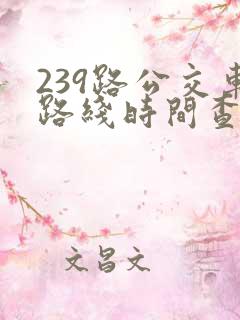 239路公交車
路綫時間查
文昌文